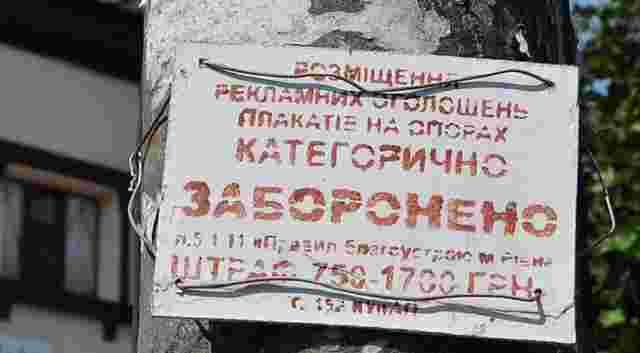 РОЗМІЩЕННЯ
РЕКЛАМНИХ ОГОЛОШЕНЬ
ПЛАКАТІВ НА ОПОРАХ
КАТЕГОРИЧНО
ЗАБОРОНЕНО
п.5.1.11 «Правил благоустрою м Рівне
ШТРАФ 750-1700 ГРН.
С. 152 КУпАП